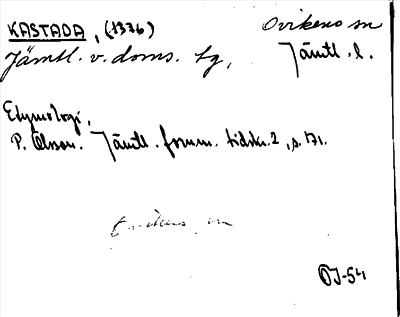 KASTADA, (1376) Ovikens sn
Jämtl. v. doms. tg, Jämtl. l.
Etymologi,
P. Olsson. Jämtl. fornm. tidskr. 2, s. 171.
sn
OJ-54